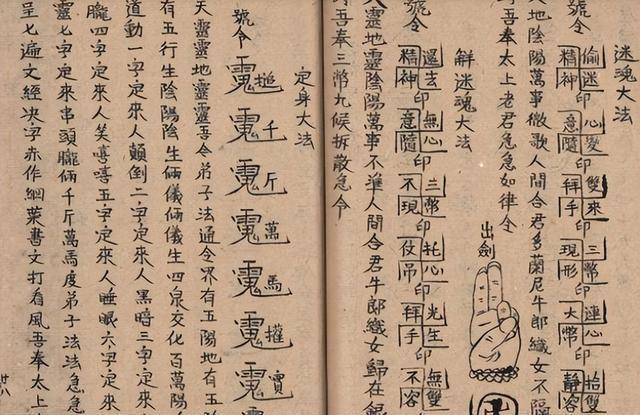 迷魂大法
號令 偷迷 精神 印 心變 意隨 印 雙來 拜手 印 三幣 現形 印 連心 大幣 印 抬雙 靜容
地陰陽萬事微歌人間合君多蘭尼牛郎織女不隔
吾奉太上老君急急如律令
出劍
觧迷魂大法
號令 還去 精神 印 無心 意隨 印 三幣 不現 印 托心 仗吊 印 光生 拜手 印 無雙 不容
靈地靈陰陽萬事不準人間合君牛郎織女歸在銀
吾奉三幣九候拆散急令
定身大法
號令 搥 千 斤 萬 馬 權 實
天靈靈地靈靈吾令弟子法通令界有五陽地有五
有五行生陰陽陰生倆儀倆儀生四泉交化百萬陽
道動一字定來人顛倒二字定來人黑暗三字定來
朧四字定來人笑嘻嘻五字定來人睡眠六字定來
靈七字定來串頭朧倆千斤萬馬度弟子法法急急
呈七遍文經決字亦作網葉書文打看風吾奉太上
廿八